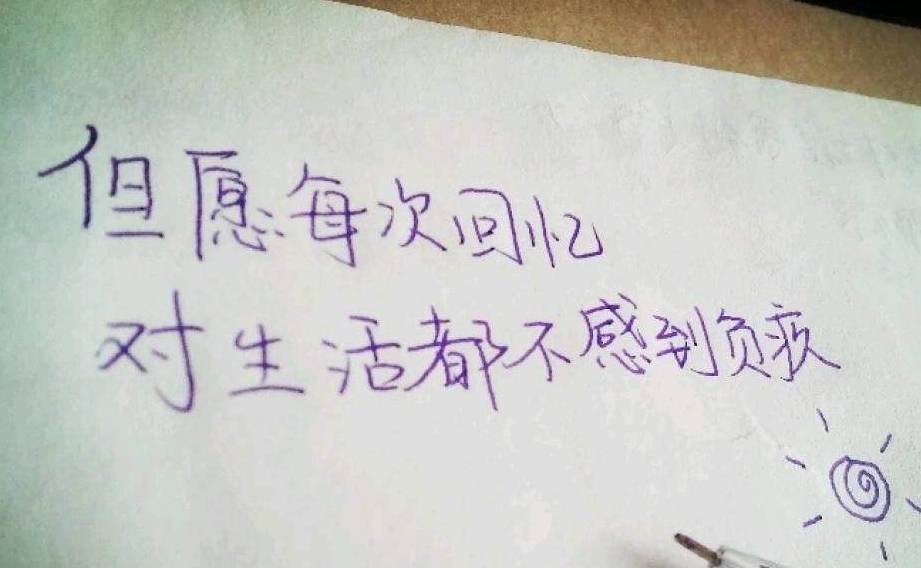 但愿每次回忆
对生活都不感到负疚